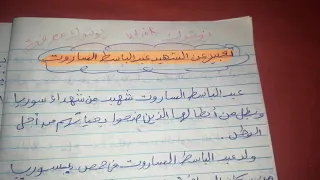 تعبير عن الشهيد عبد الباسط الساروت
عبد الباسط الساروت شهيد من شهداء سوريا
وبطل من أبطالها الذين ضحوا بحياتهم من أجل
الوطن..
ولد عبد الباسط الساروت في حمص بسوريا